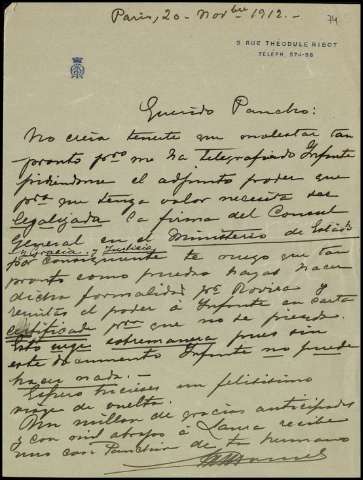 Paris, 20 - Novbre 1912. -
74
5 RUE THÉODULE RIBOT
TELEPH. 571-98
Querido Pancho:
No creia tenerte que molestar tan
pronto pero me ha telegrafiado Infante
pidiendome el adjunto poder que
para que tenga valor necesita ser
legalizada la firma del Consul
General en el Ministerio de Estado
y Gracia y Justicia
Por consiguiente te ruego que tan
pronto como puedas hagas hacer
dicha formalidad por Rovira y
remitas el poder á Infante en carta
certificada para que no se pierda.
Esto urge extremanera pues sin
este documento Infante no puede
hacer nada. -
Espero hicieses un felicisimo
viage de vuelta.
Un millon de gracias anticipadas
y con mil abrazos á Laura recibe
uno con Panchita de tu hermano